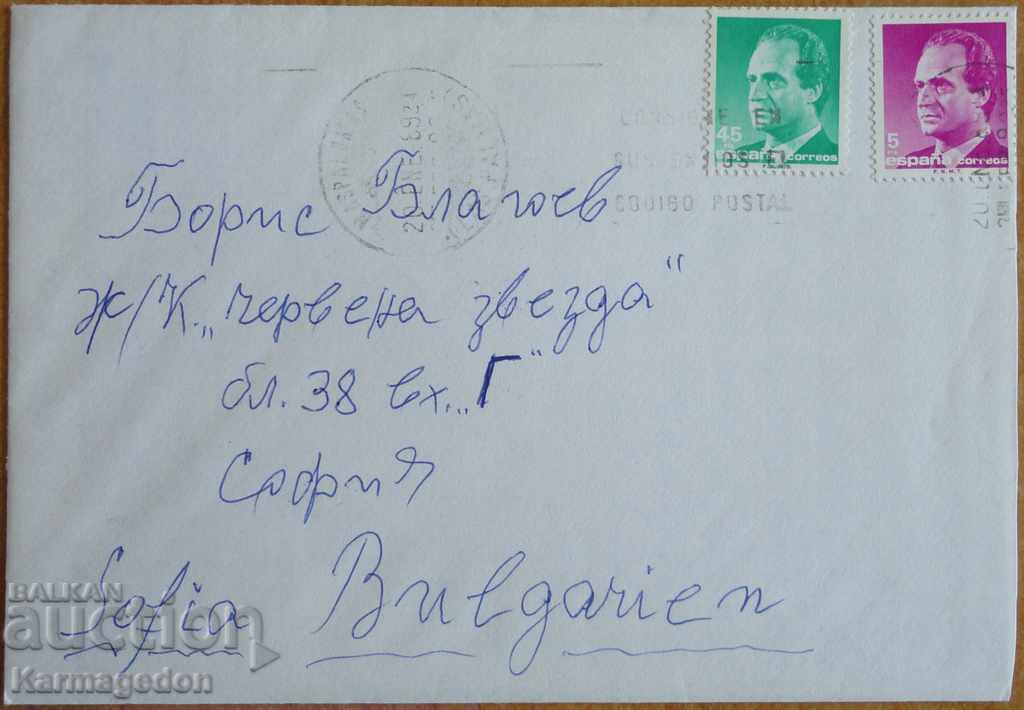 45
españa correos
5
españa correos
F.N.M.T.
CONSIGNE EN
SUS ENVIOS EL
CODIGO POSTAL
Борис Благоев
ж/к. „червена звезда“
бл. 38 вх. „Г“
София
Sofia Bulgarien
BALKAN
auction
Karmagedon